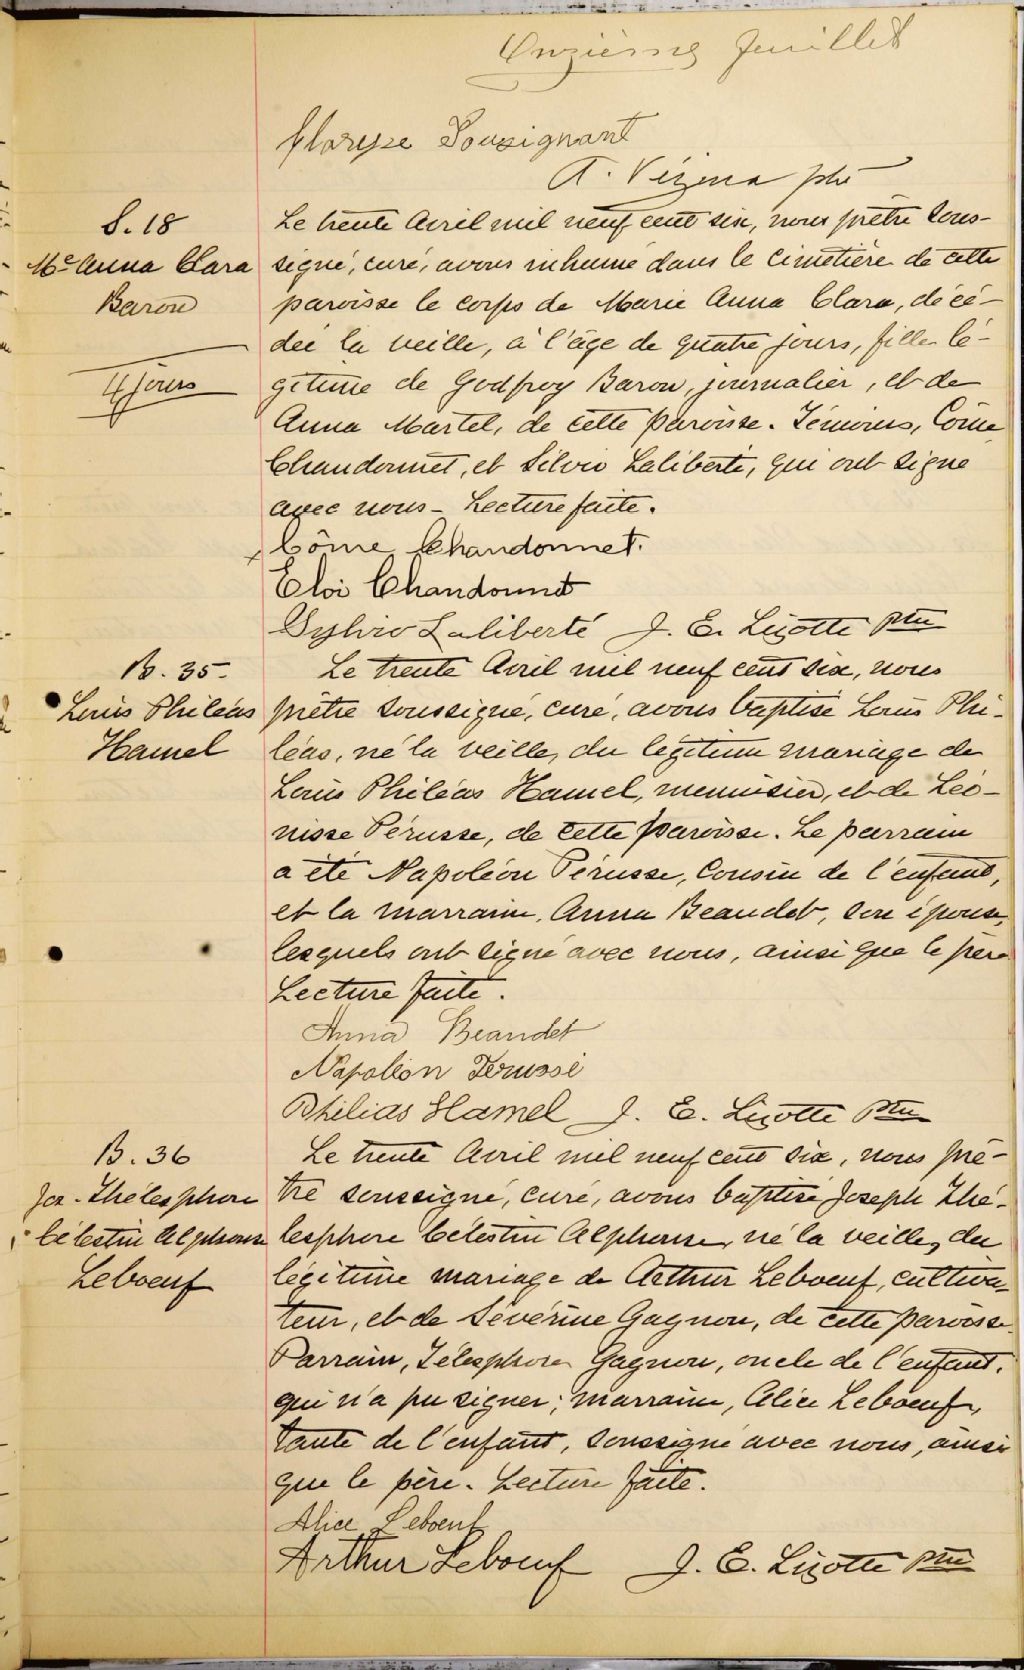 Onzième feuillet
Sousignant
A. Vézina ptre
S. 18
Me Anna Clara
Baron
4 jours
Le trente Avril mil neuf cent six, nous prêtre sous-
signé, curé, avons inhumé dans le cimetière de cette
paroisse le corps de Marie Anna Clara, décé-
dée la veille, à l'âge de quatre jours, fille lé-
gitime de Godfroy Baron, journalier, et de
Anna Martel, de cette paroisse. Témoins, Côme
Chandonnet, et Silvio Laliberté, qui ont signé
avec nous - Lecture faite.
x Côme Chandonnet.
Eloi Chandonnet
Sylvio Laliberté J. E. Lizotte Ptre
B. 35-
Louis Philéas
Hamel
Le trente Avril mil neuf cent six, nous
prêtre soussigné, curé, avons baptisé Louis Phi-
léas, né la veille, du légitime mariage de
Louis Philéas Hamel, menuisier, et de Léo-
nisse Pérusse, de cette paroisse. Le parrain
a été Napoléon Pérusse, Cousin de l'enfant,
et la marraine, Anna Beaudet, son épouse,
lesquels ont signé avec nous, ainsi que le père
Lecture faite.
Anna Beaudet
Napoléon Perusse
Philias Hamel J. E. Lizotte Ptre
B. 36
Jos-Thélesphore
Célestin Alphonse
Leboeuf
Le trente Avril mil neuf cent six, nous prê-
tre soussigné, curé, avons baptisé Joseph Thé-
lesphore Célestin Alphonse, né la veille, du
légitime mariage de Arthur Leboeuf, cultiva-
teur, et de Sévérine Gagnon, de cette paroisse.
Parrain, Télesphore Gagnon, oncle de l'enfant,
qui n'a pu signer; marraine, Alice Leboeuf,
tante de l'enfant, soussigné avec nous, ainsi
que le père. Lecture faite.
Alice Leboeuf
Arthur Leboeuf J. E. Lizotte ptre